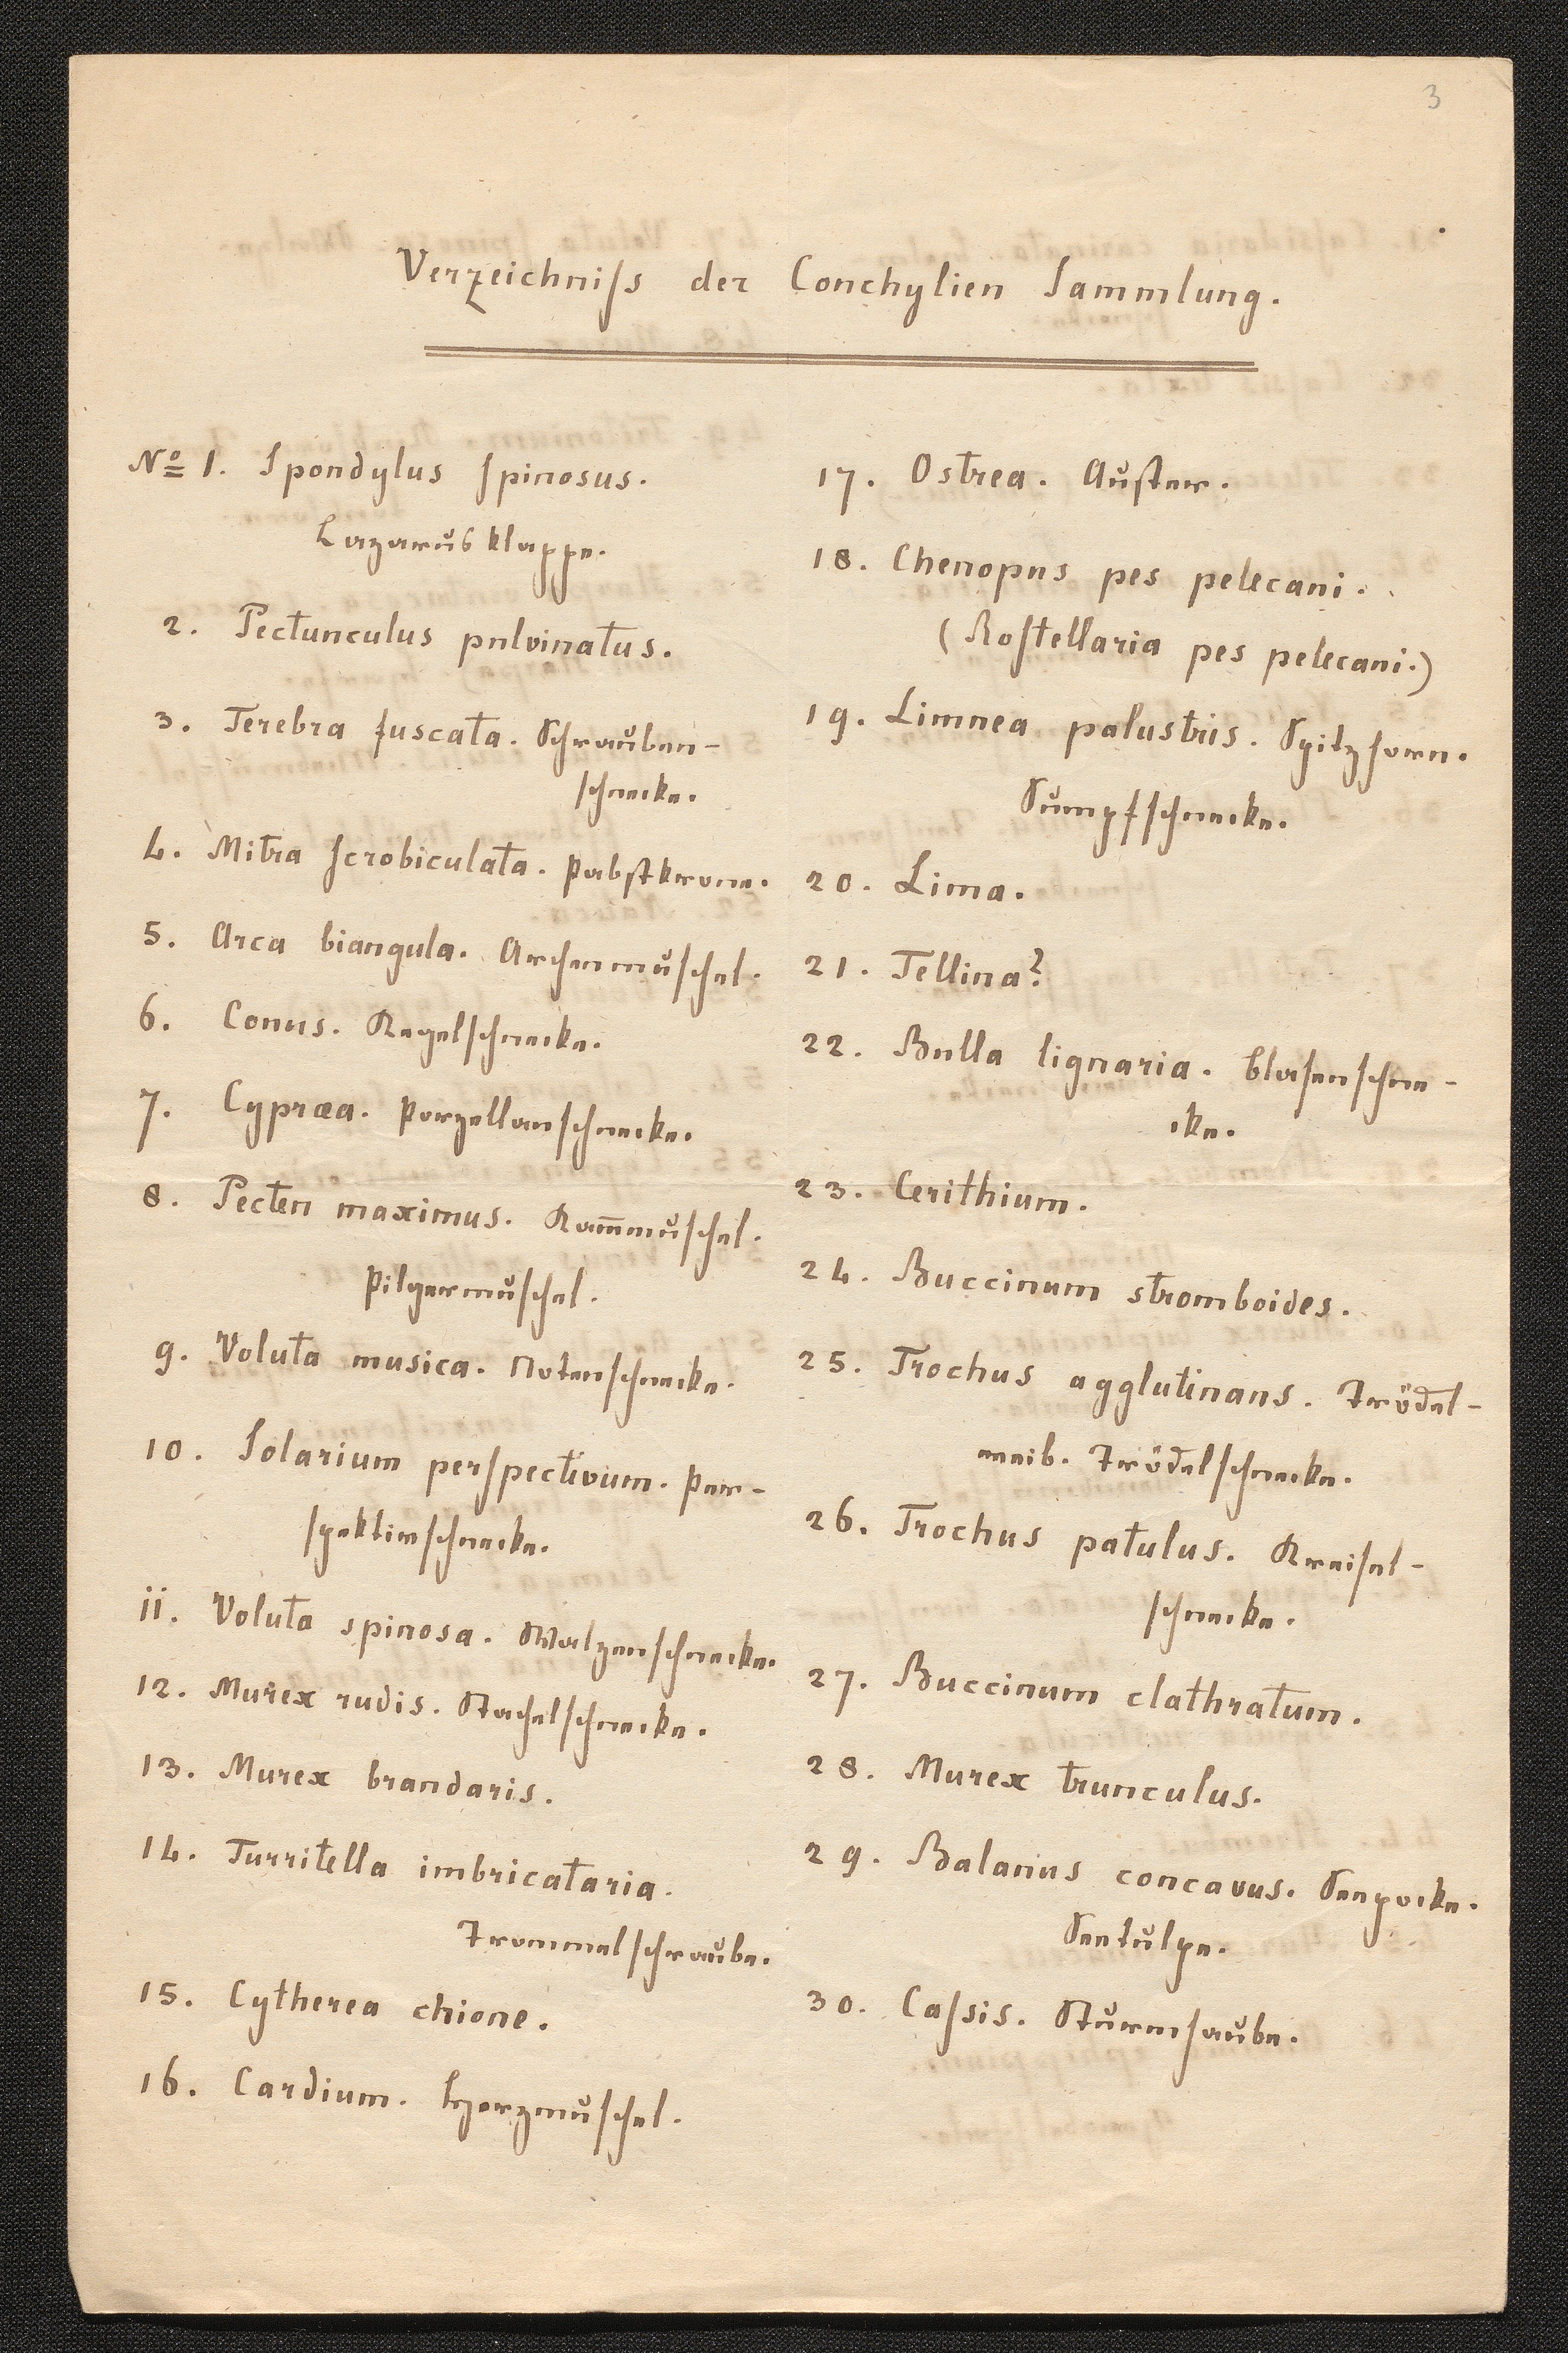 3
Verzeichniſs der Conchylien Sammlung.
No 1. Spondylus spinosus.
Lazarusklappe.
2. Pectunculus pulvinatus.
3. Terebra fuscata. Schrauben-
schnecke.
4. Mitra scrobiculata. Pabstkrone.
5. Arca biangula. Archenmuschel.
6. Conus. Kegelschnecke.
7. Cypræa. Porzellanschnecke.
8. Pecten maximus. Kam̅muschel.
Pilgermuschel.
9. Voluta musica. Notenschnecke.
10. Solarium perspectivum. Per-
spektivschnecke.
11. Voluta spinosa. Walzenschnecke.
12. Murex rudis. Stachelschnecke.
13. Murex brandaris.
14. Turritella imbricataria.
Trommelschraube.
15. Cytherea chione.
16. Cardium. Herzmuschel.
17. Ostrea. Auster.
18. Chenopus pes pelecani.
(Rostellaria pes pelecani.)
19. Limnea palustris. Spitzhorn.
Sumpfschnecke.
20. Lima.
21. Tellina?
22. Bulla lignaria. Blasenschne-
cke.
23. Cerithium.
24. Buccinum stromboides.
25. Trochus agglutinans. Trödel-
weib. Trödelschnecke.
26. Trochus patulus. Kreisel-
schnecke.
27. Buccinum clathratum.
28. Murex trunculus.
29. Balanus concavus. Seepocke.
Seetulpe.
30. Caſsis. Sturmhaube.